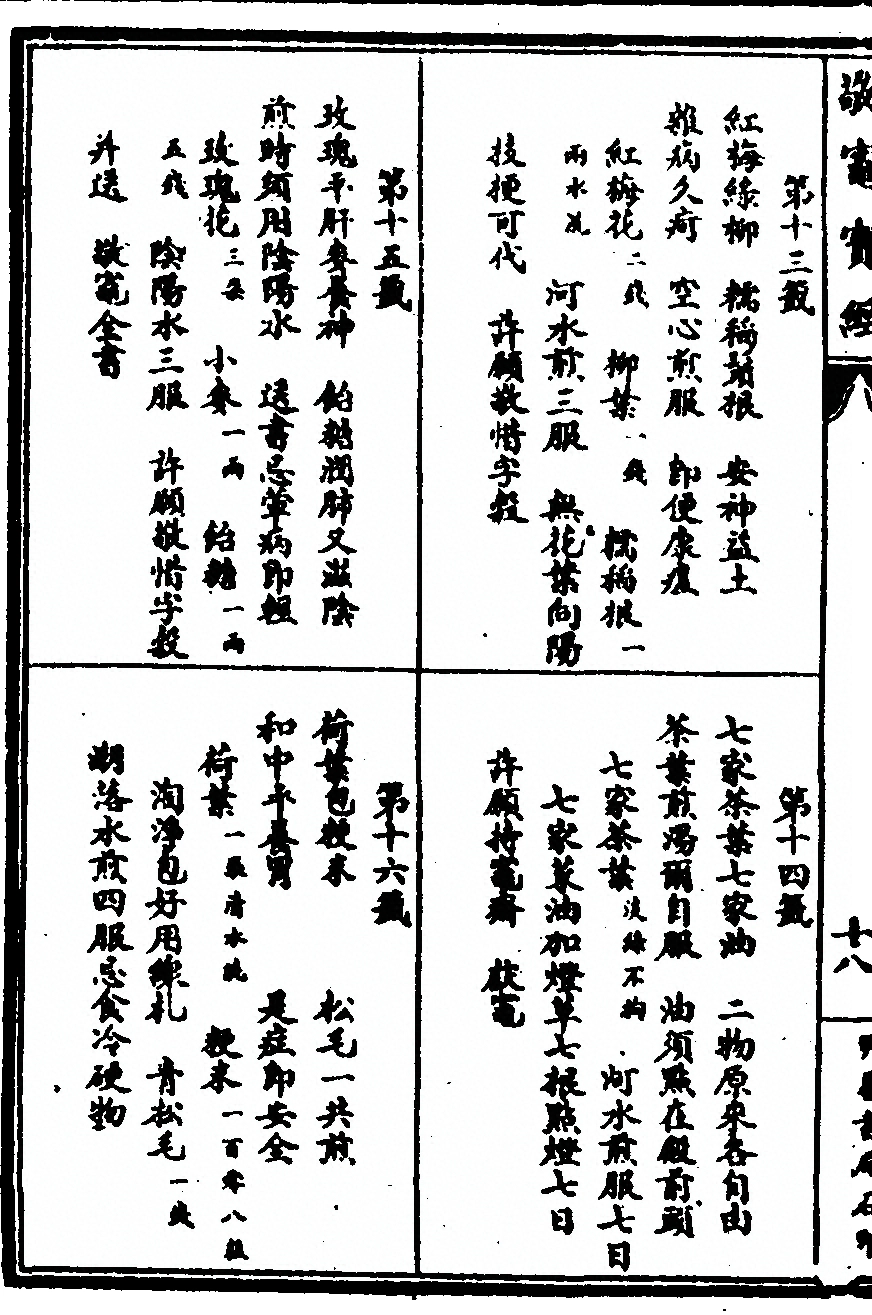 敬竈寶經
十八
第十三籤
紅梅綠柳　糯稻鬚根　安神益土
雜病久疴　空心煎服　即便康痊
紅梅花二錢　柳葉一錢　糯稻根一
兩水洗　河水煎三服　無花葉向陽
技梗可代　許願敬惜字穀
第十四籤
七家茶葉七家油　二物原來各自由
茶葉煎湯爾自服　油須點在殿前頭
七家茶葉淡綠不拘　河水煎服七日
七家菜油加燈草七根點燈七日
許願持竈齋　獻竈
第十五籤
玫瑰平肝麥養神　飴糖潤肺又滋陰
煎時須用陰陽水　送書忌葷病即輕
玫瑰花三朵　小麥一兩　飴糖一兩
五錢　陰陽水三服　許願敬惜字穀
并送　敬竈全書
第十六籤
荷葉包粳米　松毛一共煎
和中平養胃　是症即安全
荷葉一張清水洗　粳米一百零八粒
淘淨包好用線札　青松毛一錢
潮落水煎四服忌食冷硬物